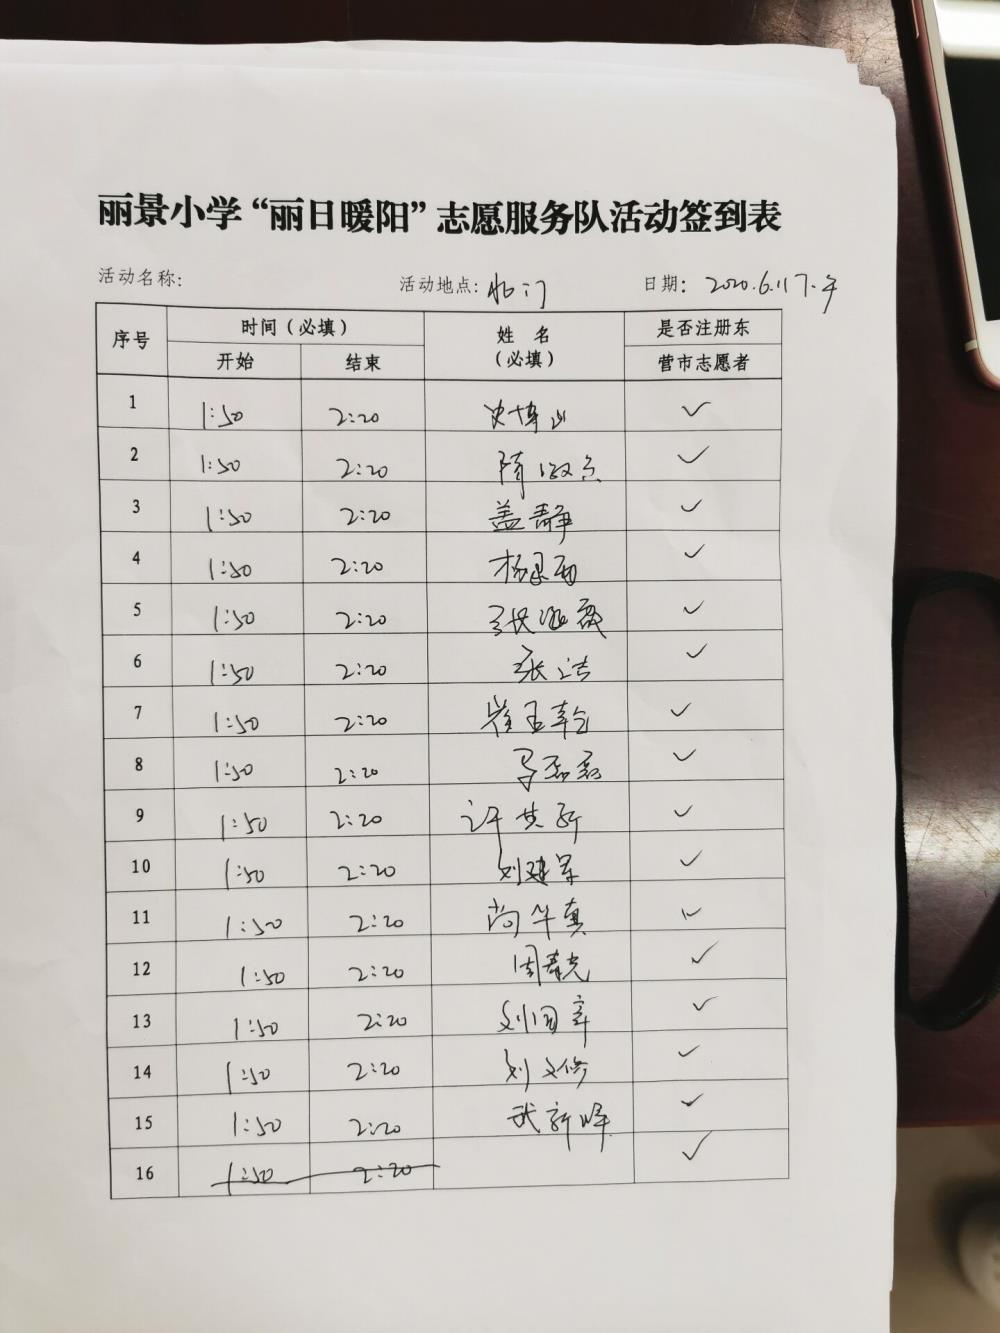 丽景小学“丽日暖阳”志愿服务队活动签到表
活动名称: 活动地点: 北门 日期: 2020.6.17.午
序号 时间(必填) 姓名(必填) 是否注册东营市志愿者
开始 结束
1 1:50 2:20 ✓
2 1:50 2:20 隋 ✓
3 1:50 2:20 盖静 ✓
4 1:50 2:20 杨 ✓
5 1:50 2:20 张海薇 ✓
6 1:50 2:20 张洁 ✓
7 1:50 2:20 崔玉 ✓
8 1:50 2:20 马磊磊 ✓
9 1:50 2:20 许其新 ✓
10 1:50 2:20 刘建军 ✓
11 1:50 2:20 尚华真 ✓
12 1:50 2:20 周春光 ✓
13 1:50 2:20 刘国章 ✓
14 1:50 2:20 刘文修 ✓
15 1:50 2:20 武新峰 ✓
16 1:50 2:20 ✓